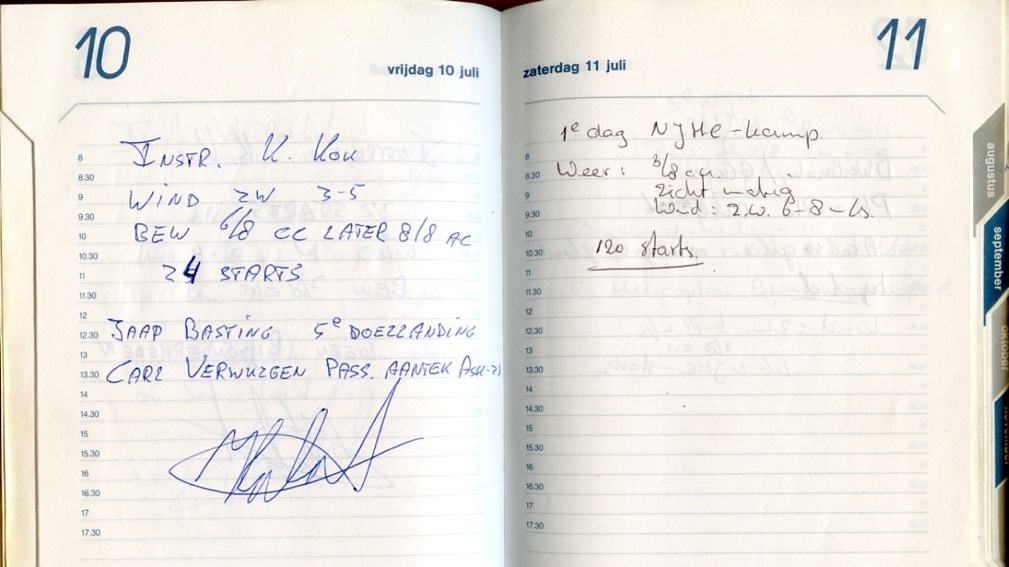 10
vrijdag 10 juli
8
8.30
9
9.30
10
10.30
11
11.30
12
12.30
13
13.30
14
14.30
15
15.30
16
16.30
17
17.30
INSTR. K. KOK
WIND ZW 3-5
BEW 6/8 CC LATER 8/8 AC
24 STARTS
JAAP BASTING 5e DOELLANDING
CARL VERWUZGEN PASS. AANTEK ASK-21
11
zaterdag 11 juli
8
8.30
9
9.30
10
10.30
11
11.30
12
12.30
13
13.30
14
14.30
15
15.30
16
16.30
17
17.30
1e dag NJHC-kamp.
Weer: 8/8 cu
zicht matig
Wind: Z.W. 6-8
120 starts.
augustus
september
oktober
november